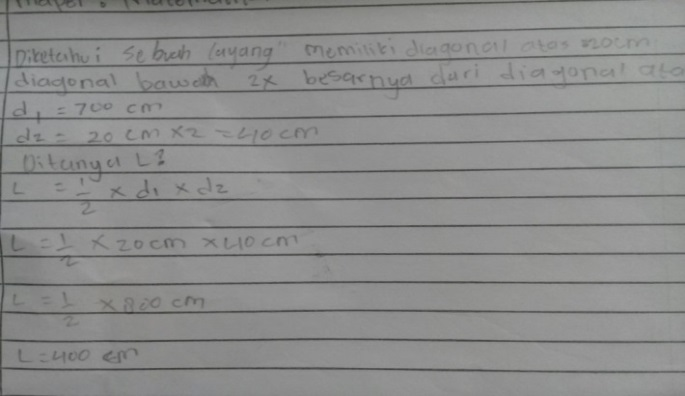 Mapel : Matematika
Diketahui sebuah layang" memiliki diagonal atas 20cm
diagonal bawah 2x besarnya dari diagonal ata
d1 = 700 cm
d2 = 20 cm x 2 = 40 cm
Ditanya L?
L = 1/2 x d1 x d2
L = 1/2 x 20cm x 40cm
L = 1/2 x 800 cm
L = 400 cm